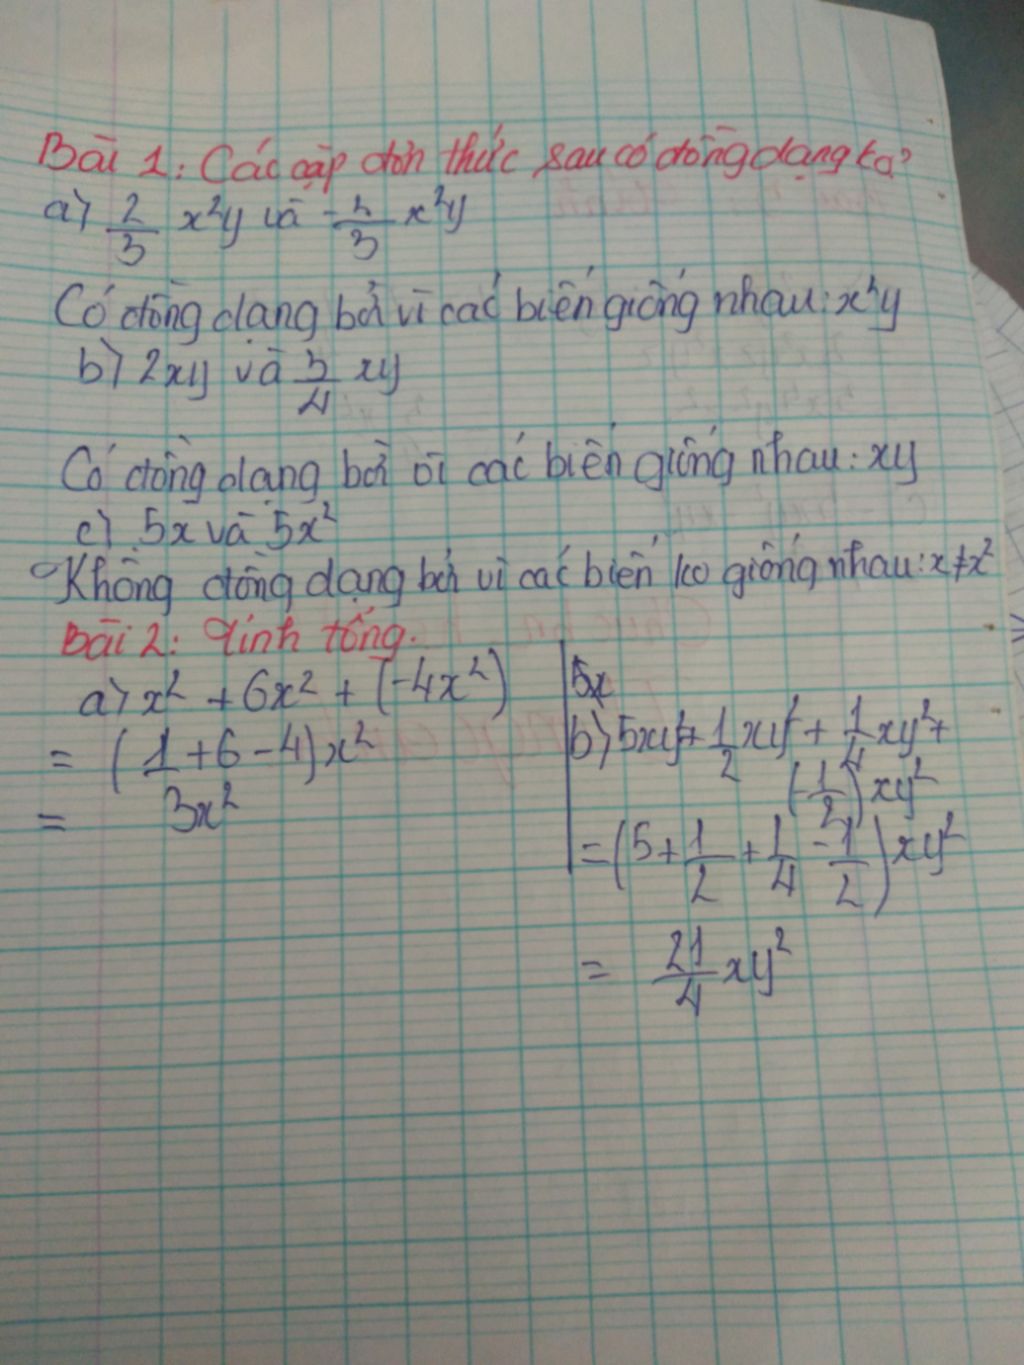 Bài 1: Các cặp đơn thức sau có đồng dạng ko?
a) 2/3 x²y và -2/3 x²y
Có đồng dạng bởi vì các biến giống nhau: x²y
b) 2xy và 3/4 xy
Có đồng dạng bởi vì các biến giống nhau: xy
c) 5x và 5x²
Không đồng dạng bởi vì các biến ko giống nhau: x≠x²
Bài 2: Tính tổng.
a) x² + 6x² + (-4x²)
= (1+6-4)x²
= 3x²
5x
b) 5xy² + 1/2 xy² + 1/4 xy² +
(-1/2) xy²
= (5 + 1/2 + 1/4 - 1/2) xy²
= 21/4 xy²